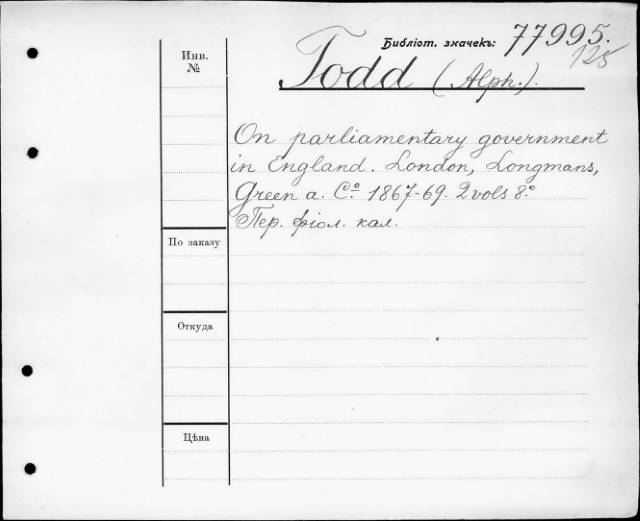 Библіот. значекъ: 77995.
125
Инв.
№
Todd (Alph.).
On parliamentary government
in England. London, Longmans,
Green a. Cº 1867-69. 2 vols 8.º
Пер. фіол. кал.
По заказу
Откуда
Цѣна